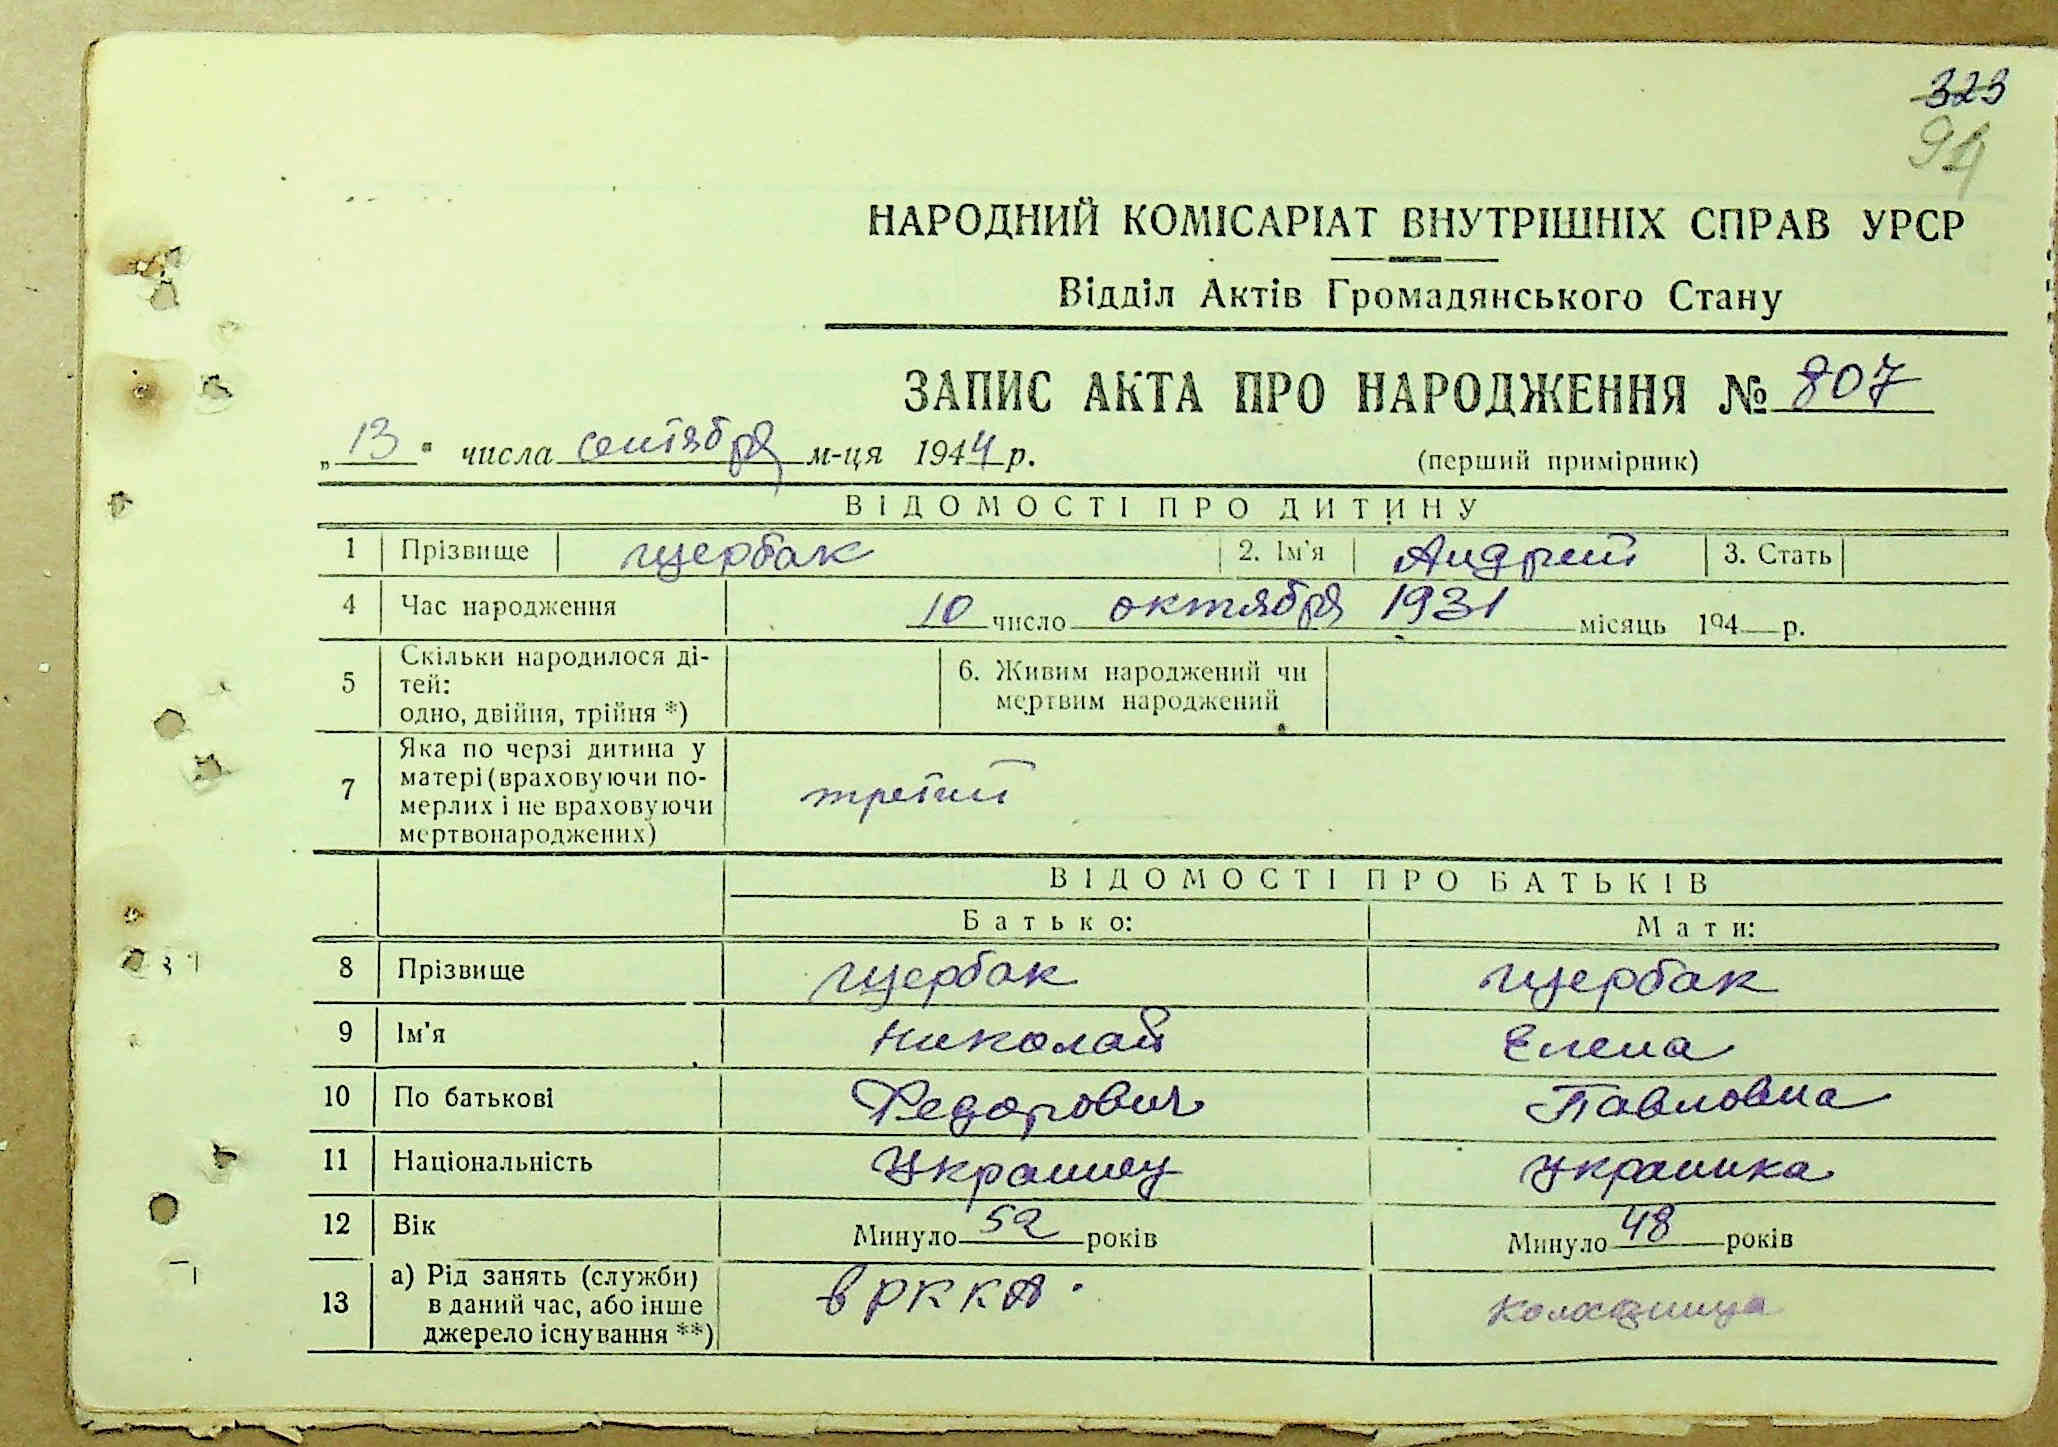 323
94
НАРОДНИЙ КОМІСАРІАТ ВНУТРІШНІХ СПРАВ УРСР
Відділ Актів Громадянського Стану
ЗАПИС АКТА ПРО НАРОДЖЕННЯ № 807
„13" числа сентября м-ця 1944 р. (перший примірник)
ВІДОМОСТІ ПРО ДИТИНУ
1 Прізвище Щербак 2. Ім'я Андрей 3. Стать
4 Час народження 10 число октября 1931 місяць 194 р.
5 Скільки народилося ді-
тей:
одно, двійня, трійня *)
6. Живим народжений чи
мертвим народжений
7 Яка по черзі дитина у
матері (враховуючи по-
мерлих і не враховуючи
мертвонароджених)
третий
ВІДОМОСТІ ПРО БАТЬКІВ
Батько: Мати:
8 Прізвище Щербак Щербак
9 Ім'я Николай Елена
10 По батькові Федорович Павловна
11 Національність Украинец Украинка
12 Вік Минуло 52 років Минуло 48 років
13 а) Рід занять (служби)
в даний час, або інше
джерело існування **)
в РККА. колхозница